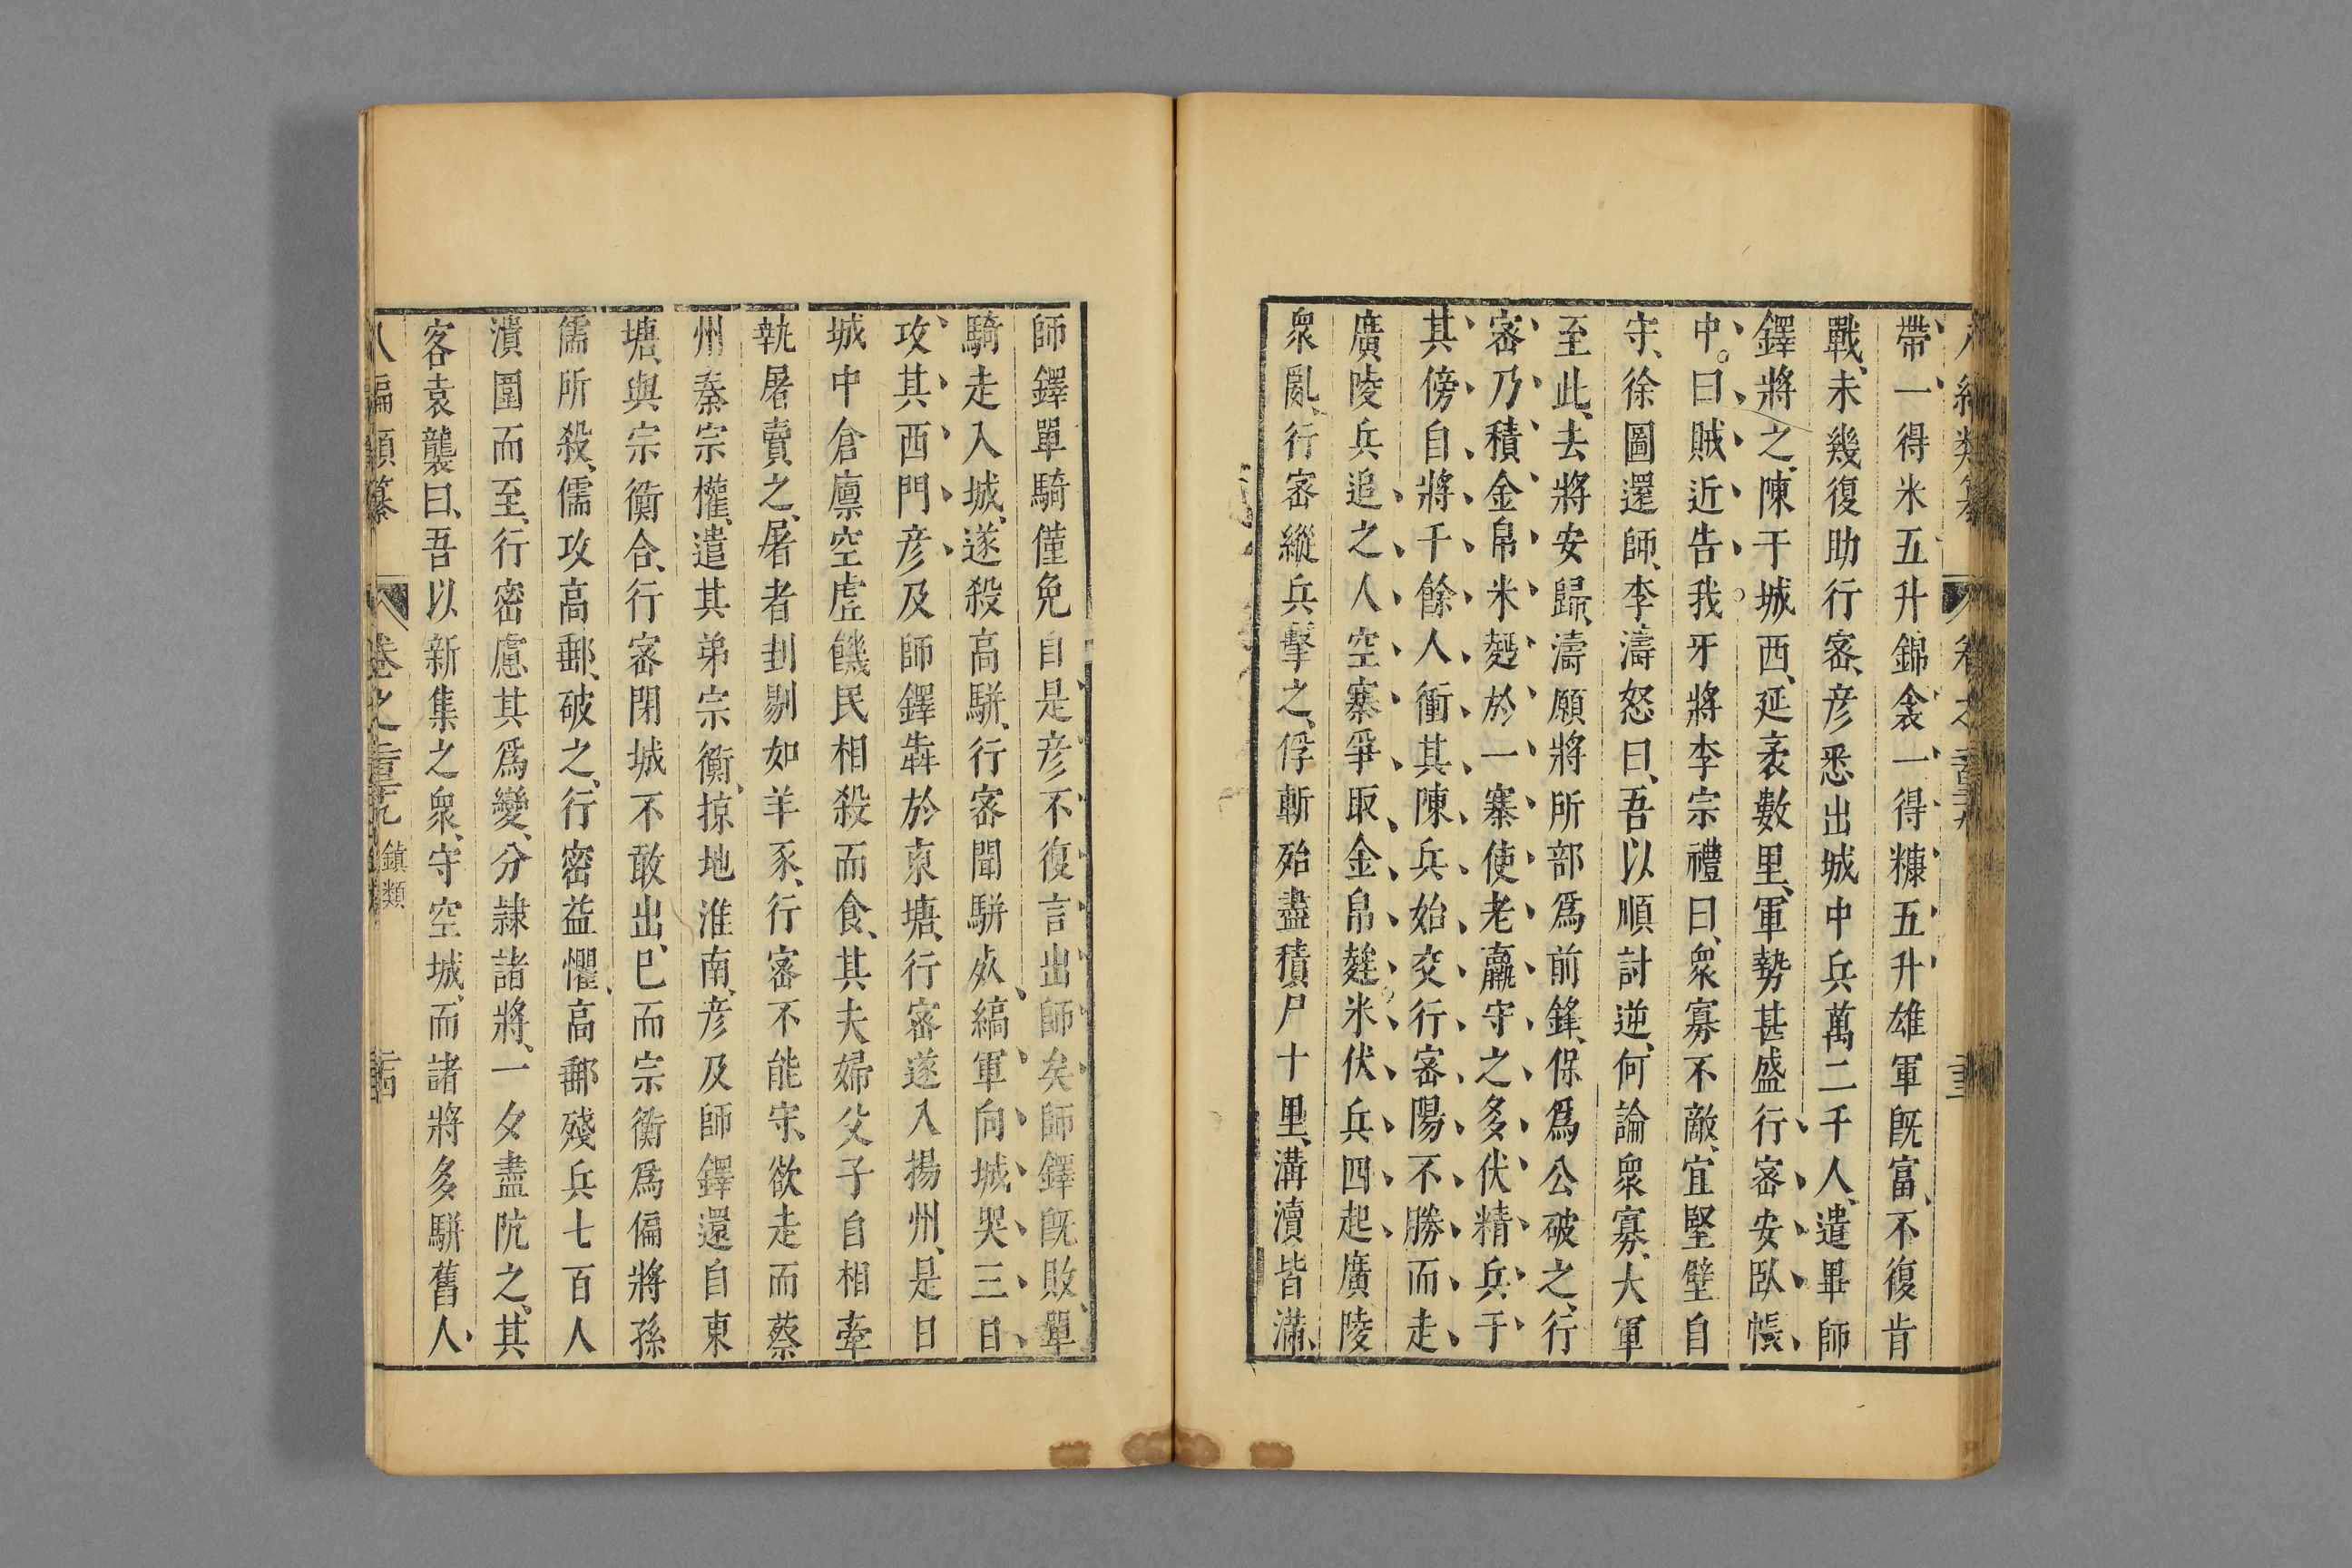 帶一得米五升錦衾一得糠五升雄軍既富、不復肯
戰、未幾復助行密、彦悉出城中兵萬二千人、遣畢師
鐸將之、陳于城西、延袤數里、軍勢甚盛行密安臥帳
中。曰賊近告我牙將李宗禮曰、衆寡不敵、宜堅壁自
守、徐圖還師、李濤怒曰、吾以順討逆、何論衆寡、大軍
至此、去將安歸、濤願將所部爲前鋒、保爲公破之、行
密乃積金帛米麫於一寨使老羸守之多伏精兵于
其傍自將千餘人衝其陳兵始交行密陽不勝而走
廣陵兵追之人空寨爭取金帛麰米伏兵四起廣陵
衆亂、行密縱兵擊之、俘斬殆盡積尸十里、溝瀆皆滿、
師鐸單騎僅免自是彦不復言出師矣師鐸既敗、單
騎走入城、遂殺高駢、行密聞駢死、縞軍向城哭三日
攻其西門、彦及師鐸犇於東塘、行密遂入揚州、是日
城中倉廩空虗饑民相殺而食、其夫婦父子自相牽
執屠賣之、屠者刲剔如羊豕、行密不能守、欲走而蔡
州秦宗權、遣其弟宗衡、掠地淮南、彦及師鐸還自東
塘、與宗衡合、行密閉城不敢出、已而宗衡爲偏將孫
儒所殺、儒攻高郵、破之、行密益懼、高郵殘兵七百人
潰圍而至、行密慮其爲變、分隷諸將、一夕盡阬之、其
客袁襲曰、吾以新集之衆、守空城、而諸將多駢舊人、
八編類纂 卷之 鎮類